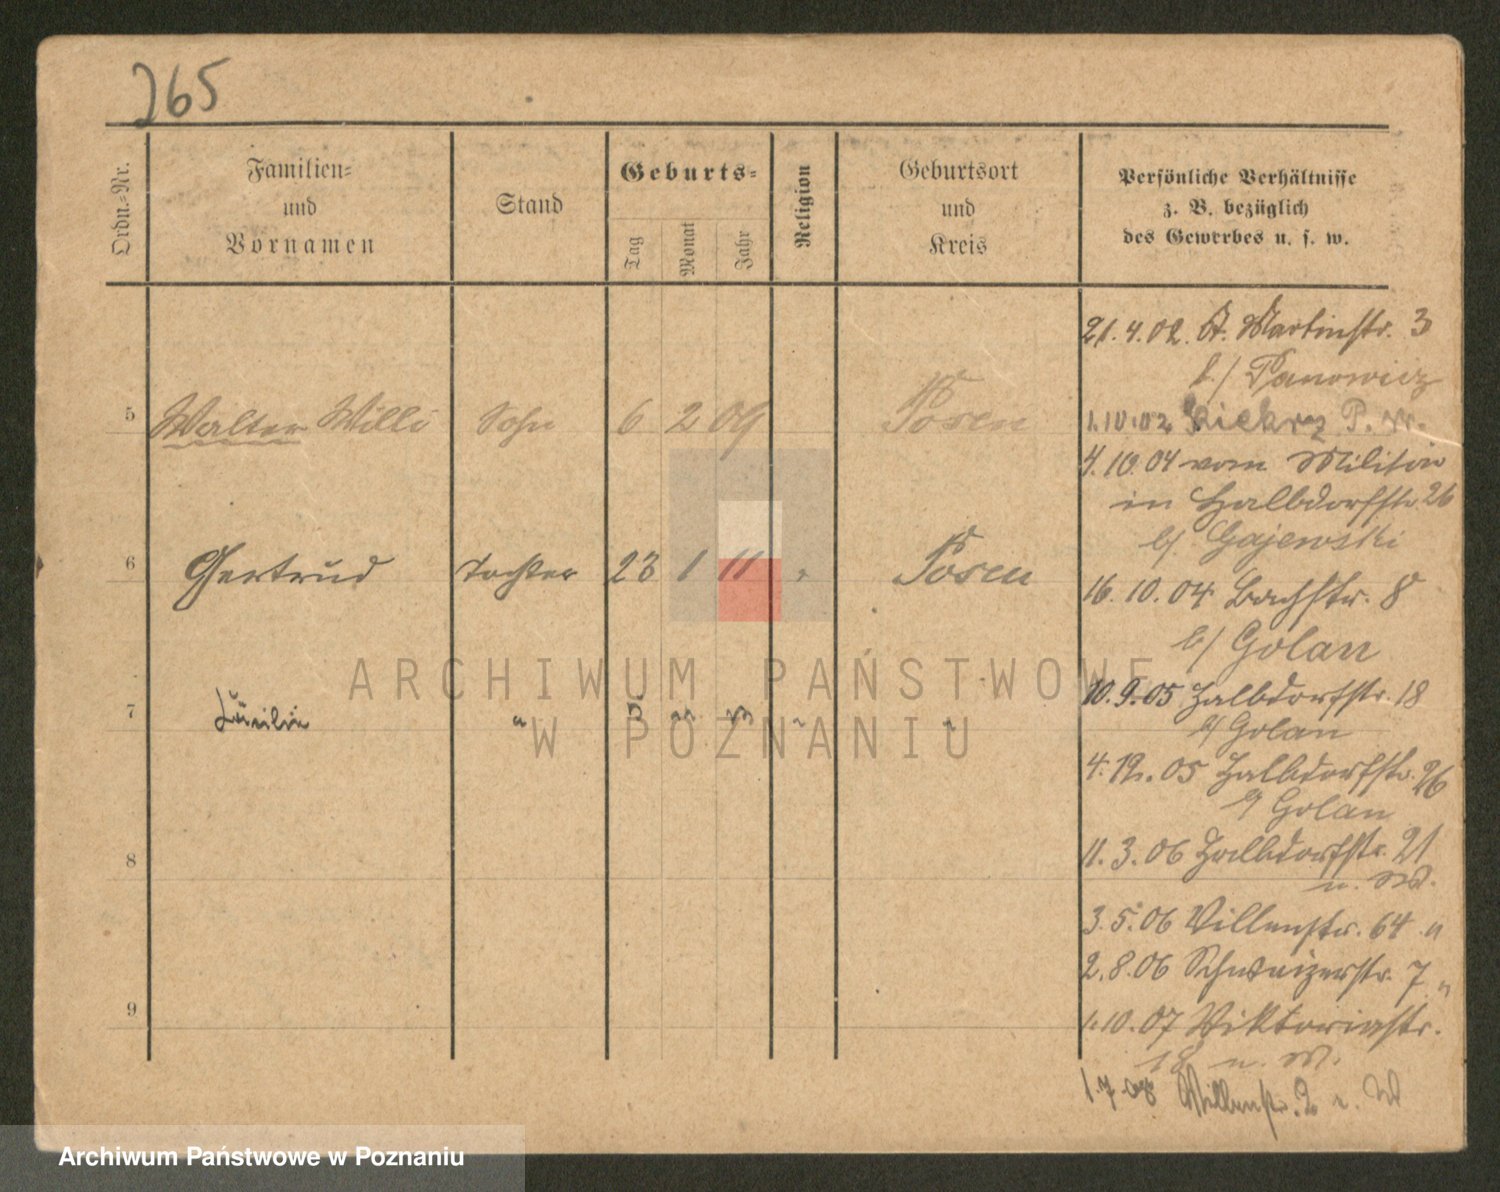 265
Ordn.-Nr.
Familien-
und
Vornamen
Stand
Geburts-
Tag
Monat
Jahr
Religion
Geburtsort
und
Kreis
Persönliche Verhältnisse
z. B. bezüglich
des Gewerbes u. s. w.
21.4.02. St. Martinstr. 3
b/ Panowicz
5 Walter Willi Sohn 6 2 09 Posen
1.10.02 Kiekrz P. W.
4.10.04 vom Militär
in Halbdorfstr 26
b/ Gajewski
6 Gertrud Tochter 23 1 11 " Posen
16.10.04 Bachstr. 8
b/ Golan
7 " "
10.9.05 Halbdorfstr. 18
b/ Golan
4.12.05 Halbdorfstr. 26
b/ Golan
8
11.3.06 Halbdorfstr. 21
u. W.
3.5.06 Villenstr. 64 "
2.8.06 Schweizerstr. 7 "
9
1.10.07 Viktoriastr.
18 u. W.
1.7.08 Villenstr. 2 u. W
ARCHIWUM PAŃSTWOWE
W POZNANIU
Archiwum Państwowe w Poznaniu